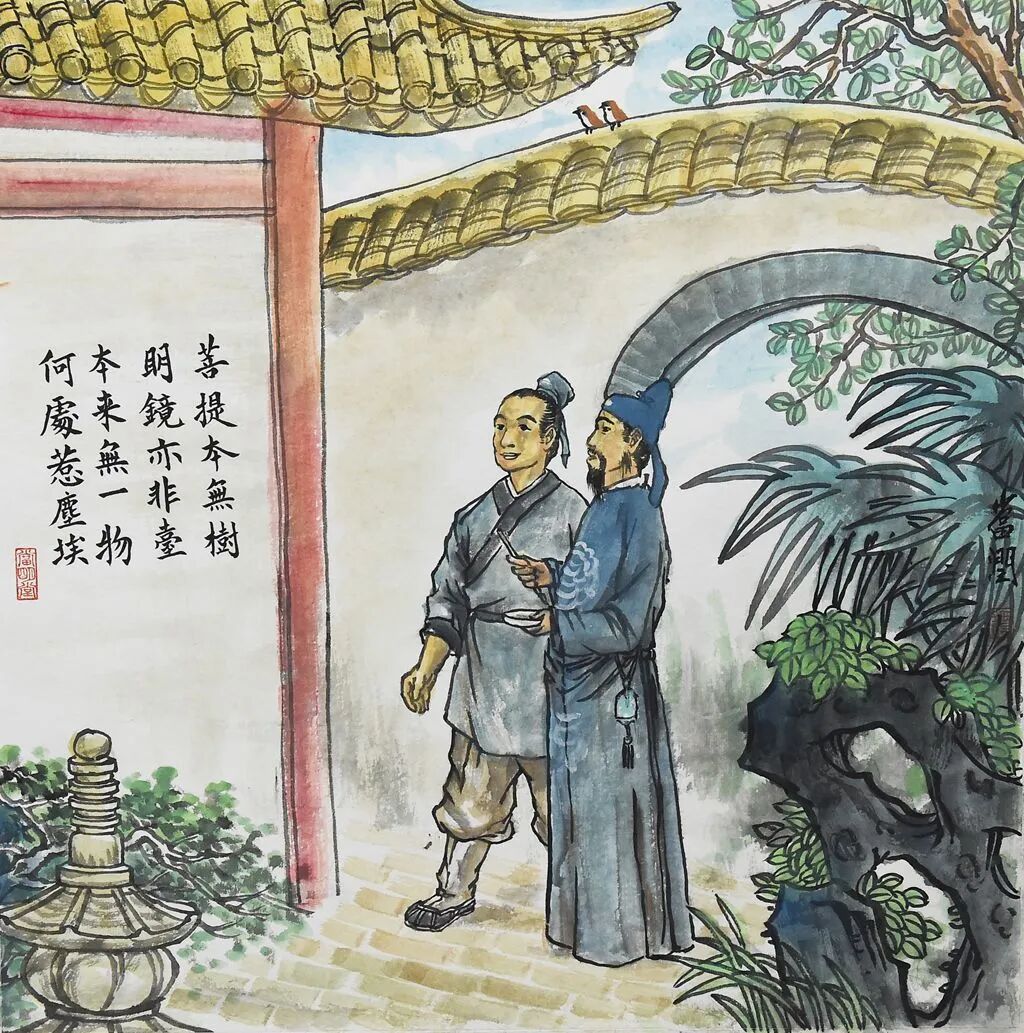 菩提本無樹
明鏡亦非臺
本来無一物
何處惹塵埃